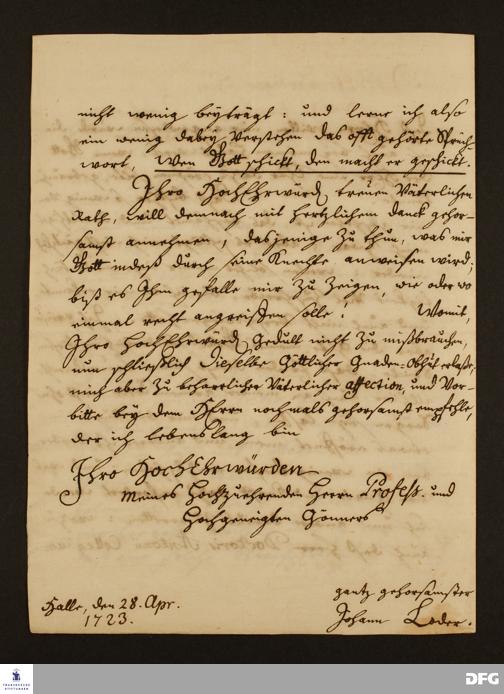 nicht wenig beyträgt: und lerne ich also
ein wenig dabey verstehen das offt gehörte Sprich-
wort, Wen Gott schickt, den macht er geschickt.
Ihro HochEhrwürd. treuen Väterlichen
Rath, will demnach mit hertzlichem danck gehor-
samst annehmen, dasjenige zu thun, was mir
Gott indeß durch seine Knechte anweisen wird;
biß es Ihm gefalle mir zu zeigen, wie oder wo
einmal recht angreiffen solle! Womit,
Ihro HochEhrwürd. Gedult nicht zu mißbrauchen,
nun schließlich dieselbe Göttlicher Gnaden-Obhut erlaße,
mich aber zu beharrlicher Väterlicher affection, und Vor-
bitte bey dem HErrn nochmals gehorsamst empfehle,
der ich lebenslang bin
Ihro HochEhrwürden
Meines Hochzuehrenden Herrn Profess. und
Hochgeneigten Gönners
gantz gehorsamster
Halle, den 28. Apr.
1723.
Johann Loder.
FRANCKESCHE STIFTUNGEN
DFG